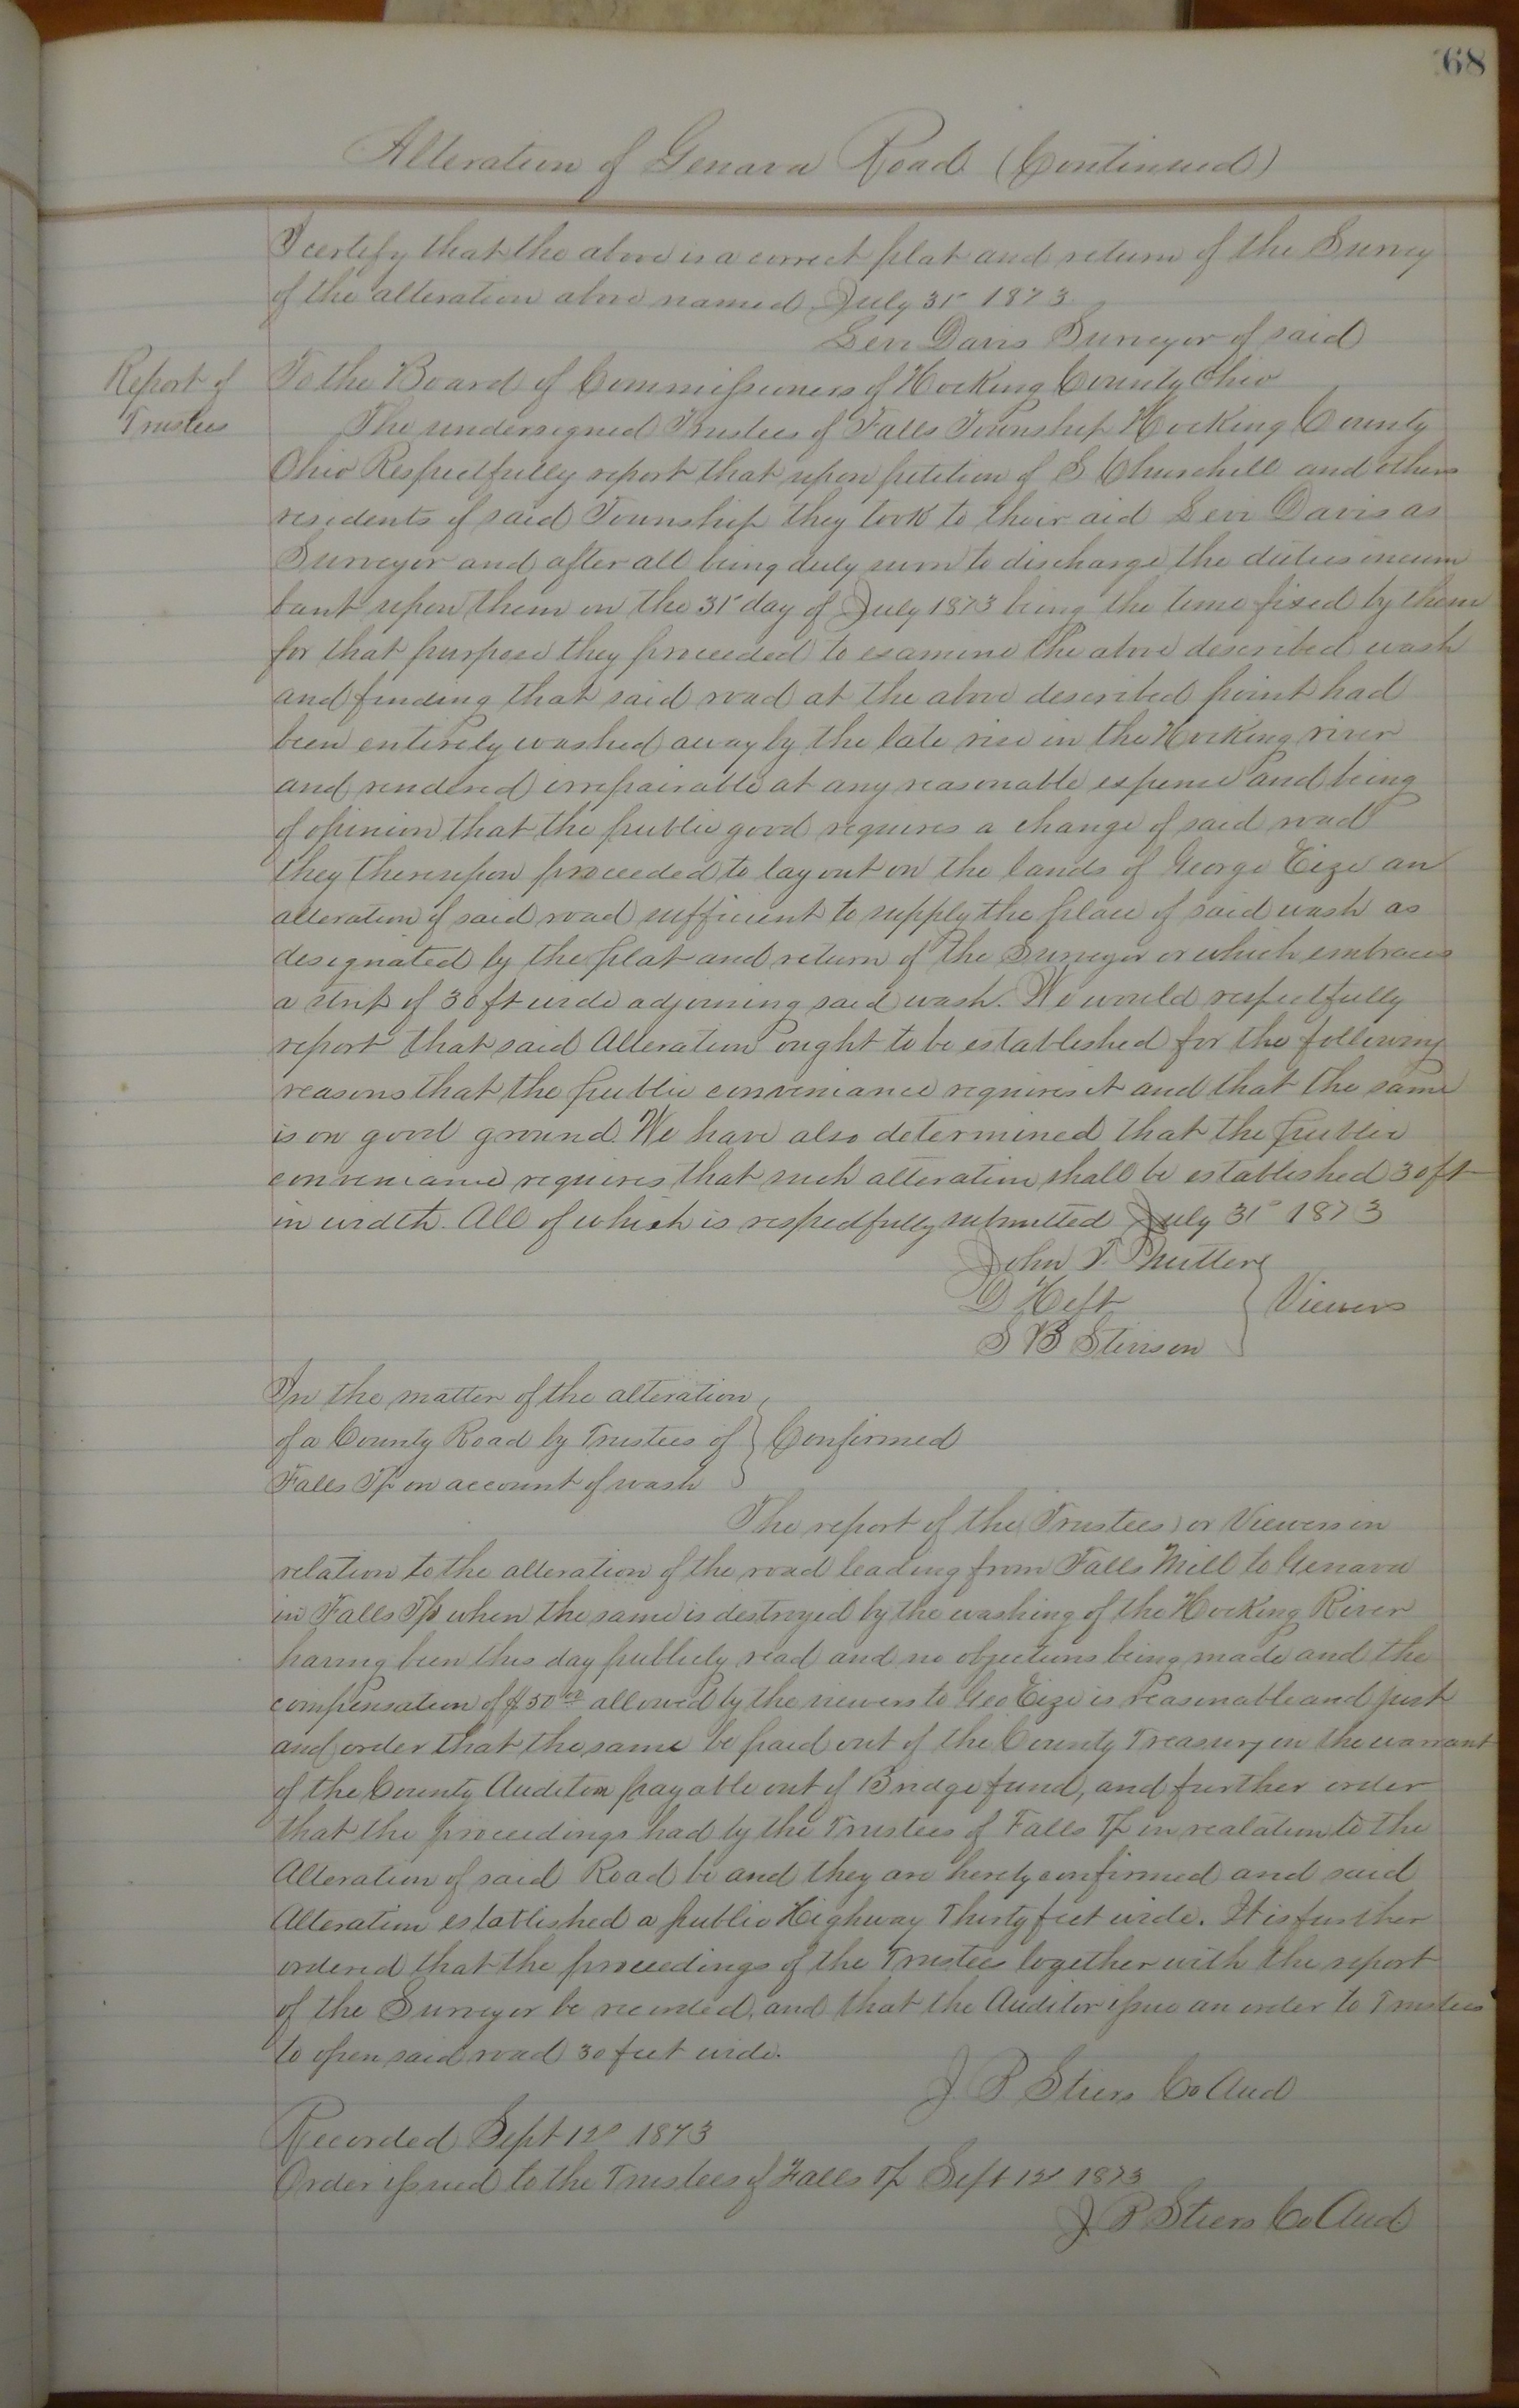 68
Alteration of Genava Road (Continued)
I certify that the above is a correct plat and return of the Survey
of the alteration above named July 31st 1873
Levi Davis Surveyor of said
Report of
Trustees
To the Board of Commissioners of Hocking County Ohio
The undersigned Trustees of Falls Township Hocking County
Ohio Respectfully report that upon petition of S Churchill and others
residents of said Township they took to their aid Levi Davis as
Surveyor and after all being duly sworn to discharge the duties incum
bant upon them on the 31st day of July 1873 being the time fixed by them
for that purpose they proceeded to examine the above described wash
and finding that said road at the above described point had
been entirely washed away by the late rise in the Hocking river
and rendered irrepairable at any reasonable expense and being
of opinion that the public good requires a change of said road
they thereupon proceeded to lay out on the lands of George Eize an
alteration of said road sufficient to supply the place of said wash as
designated by the plat and return of the Surveyor or which embraces
a strip of 30 ft wide adjoining said wash. We would respectfully
report that said Alteration ought to be established for the following
reasons that the public conveniance requires it and that the same
is on good ground. We have also determined that the public
conveniance requires that such alteration shall be established 30 ft
in width. All of which is respectfully submitted July 31st 1873
John T.
D Heft
S B Stinson
Viewers
In the matter of the alteration
of a County Road by Trustees of
Falls Tp on account of wash
Confirmed
The report of the Trustees or Viewers in
relation to the alteration of the road leading from Falls Mill to Genava
in Falls Tp when the same is destroyed by the washing of the Hocking River
having been this day publicly read and no objections being made and the
compensation of $50 00 allowed by the viewers to Geo Eize is reasonable and just
and order that the same be paid out of the County Treasury on the warrant
of the County Auditor payable out of Bridge fund, and further order
that the proceedings had by the Trustees of Falls Tp in realation to the
Alteration of said Road be and they are hereby confirmed and said
Alteration established a public Highway Thirty feet wide. It is further
ordered that the proceedings of the Trustees together with the report
of the Surveyor be recorded, and that the Auditor issue an order to Trustees
to open said road 30 feet wide.
J P Stiers Co Aud
Recorded Sept 12 1873
Order issued to the Trustees of Falls Tp Sept 12 1873
J P Stiers Co Aud